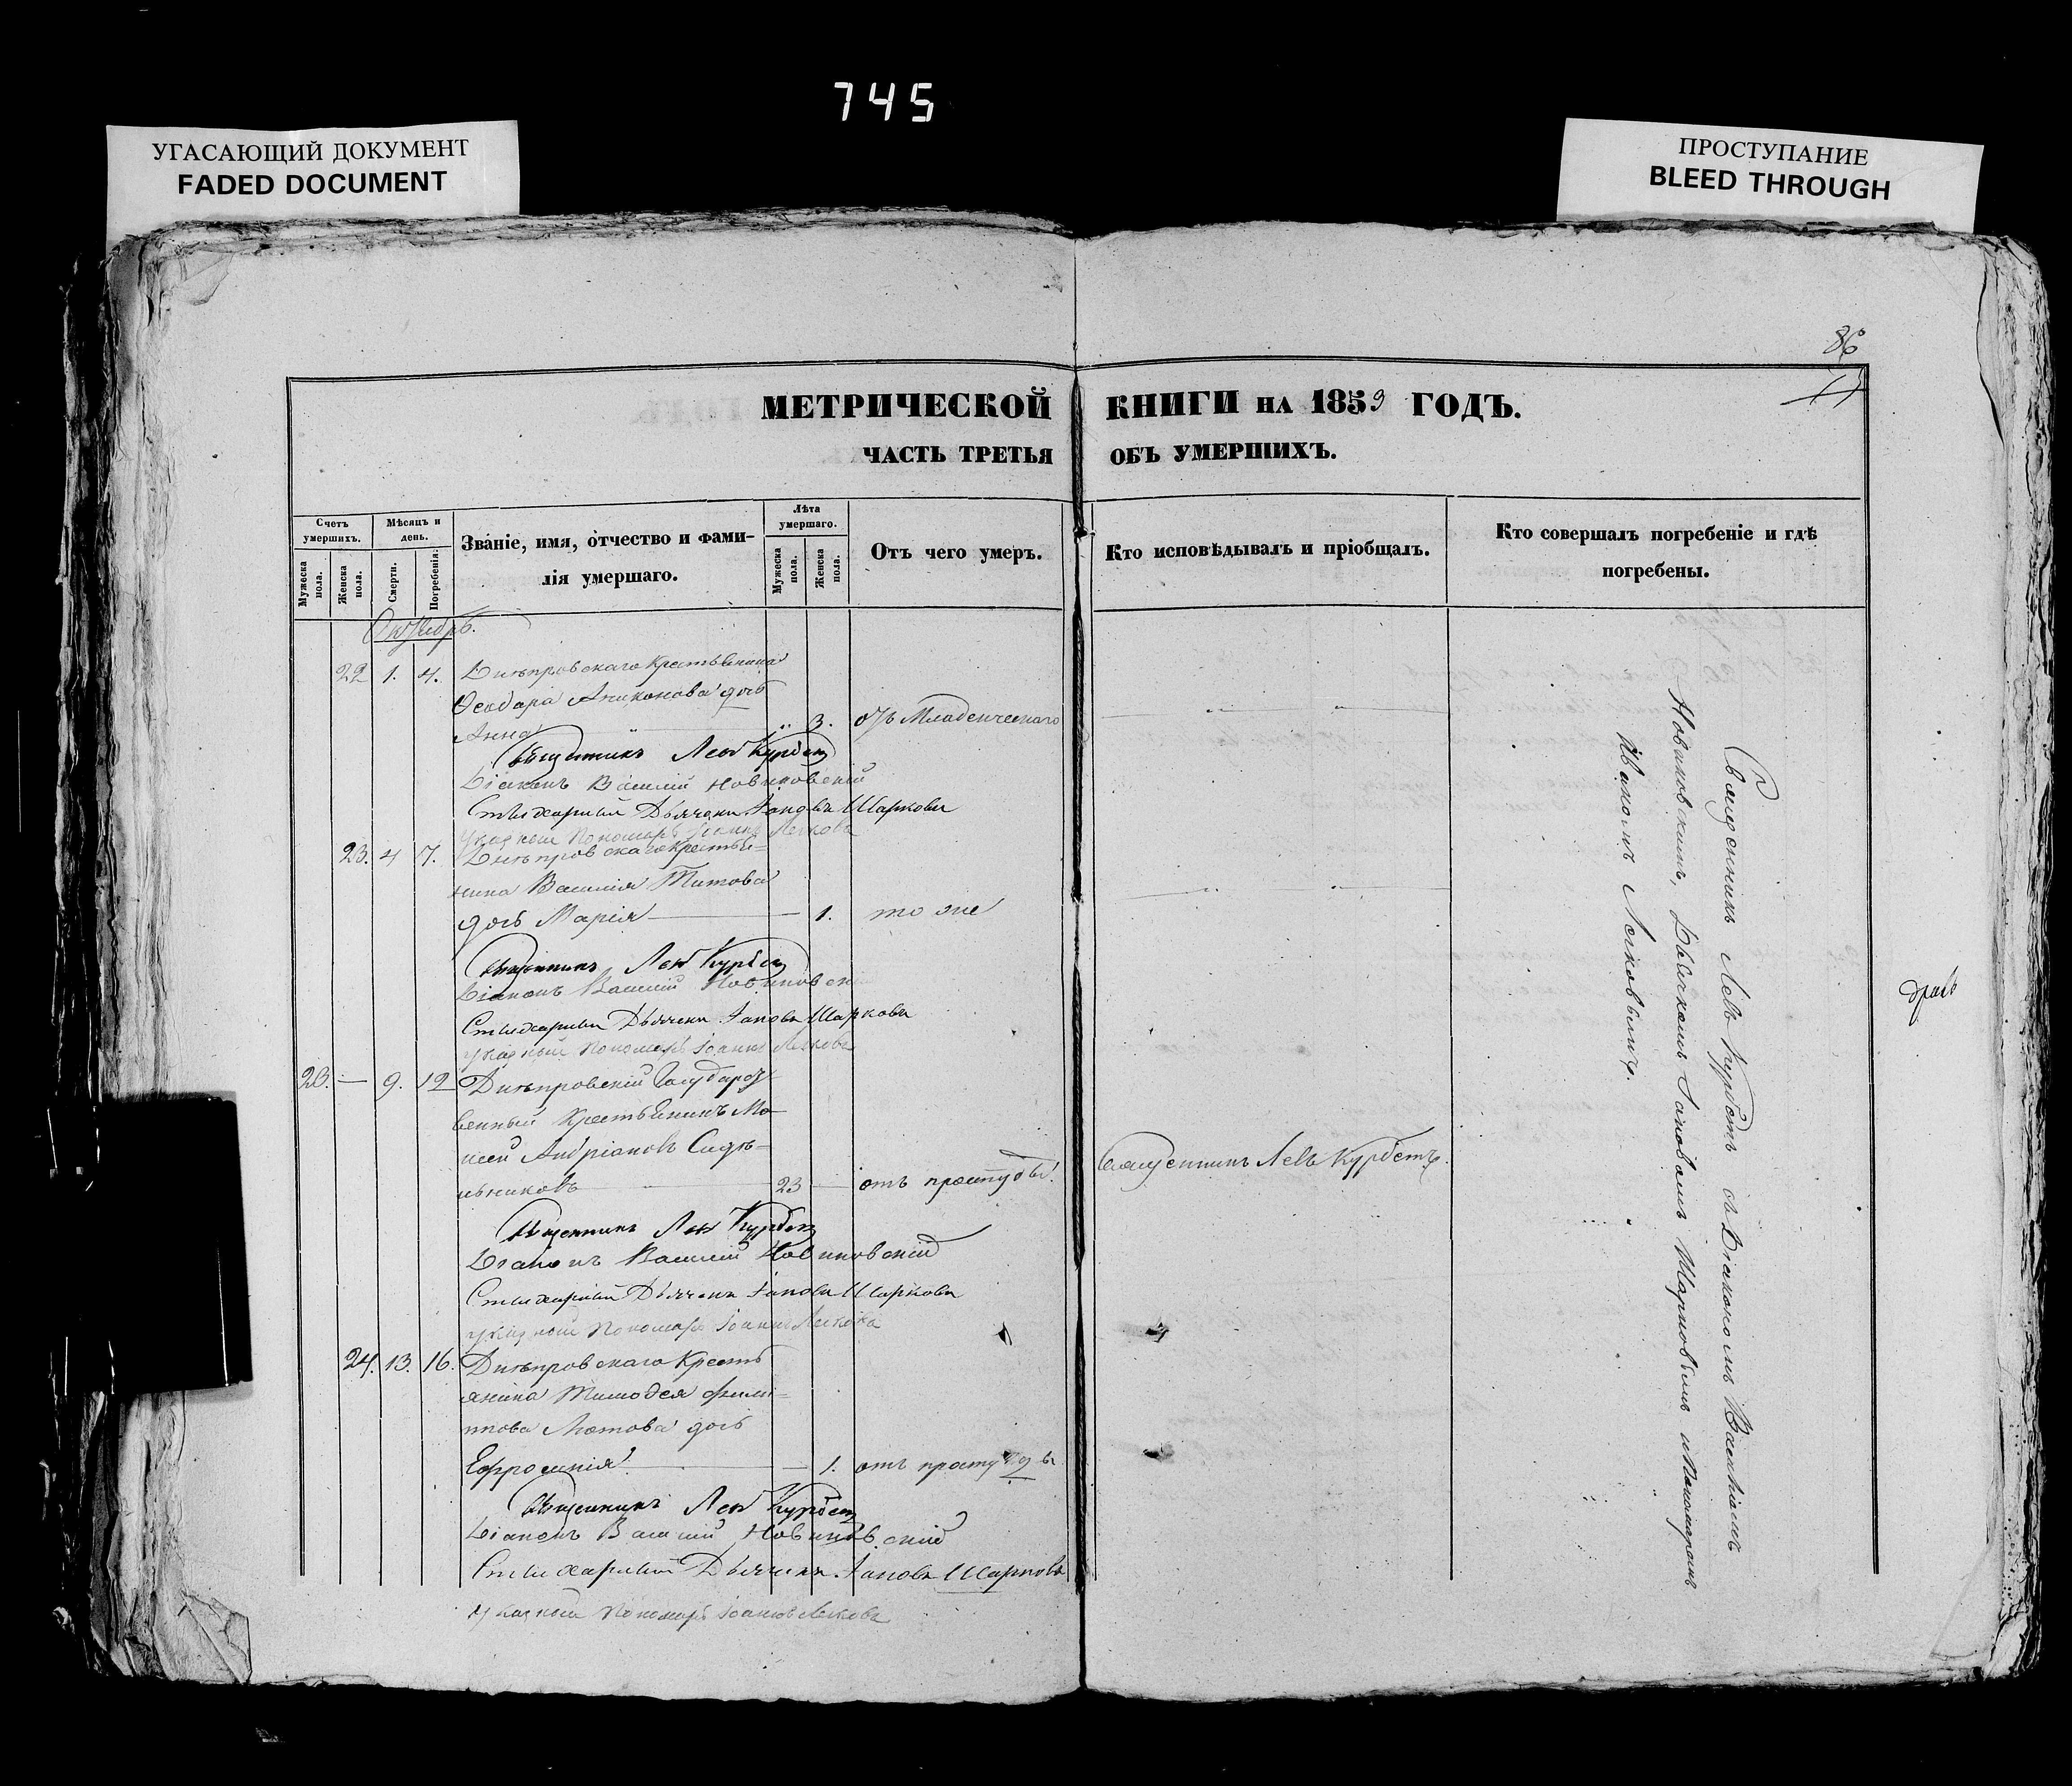 745
УГАСАЮЩИЙ ДОКУМЕНТ
FADED DOCUMENT
ПРОСТУПАНИЕ
BLEED THROUGH
86
МЕТРИЧЕСКОЙ КНИГИ НА 1859 ГОДЪ.
ЧАСТЬ ТРЕТЬЯ ОБЪ УМЕРШИХЪ.
Счетъ умершихъ.
Мужеска пола.
Женска пола.
Мѣсяцъ и день.
Смерти.
Погребенія.
Званіе, имя, отчество и фами-
лія умершаго.
Лѣта умершаго.
Мужеска пола.
Женска пола.
Отъ чего умеръ.
Кто исповѣдывалъ и пріобщалъ.
Кто совершалъ погребеніе и гдѣ
погребены.
Октябрь.
22 1. 4. Днѣпровскаго крестьянина
Ѳеодора дочь
Анна " 3. отъ Младенческаго
Священникъ Левъ Курбетъ
Діаконъ Василій Новиковскій
Стихарный Дьячекъ Іаковъ Шарковъ
Указный Пономарь Іоаннъ
23. 4 7. Днѣпровскаго Крестья=
нина Василія Титова
дочь Марія — 1. то же
Священникъ Левъ Курбетъ
Діаконъ Василій Новиковскі
Стихарный Дьячекъ Іаковъ Шарковъ
Указный Пономарь Іоаннъ
23. — 9. 12 Днѣпровскій Государст
венный Крестьянинъ Мо-
исей Андріановъ Сидѣ=
льниковъ 23 — отъ простуды. Священникъ Левъ Курбетъ.
Священникъ Левъ Курбетъ
Діаконъ Василій Новиковскій
Стихарный Дьячекъ Іаковъ Шарковъ
Указный Пономарь Іоаннъ
24. 13. 16. Днѣпровскаго Кресть
янина Тимофея Фили=
ппова дочь
Ефросинія — 1. отъ простуды
Священникъ Левъ Курбетъ
Діаконъ Василій Новиковскій
Стихарный Дьячекъ Іаковъ Шарковъ
Указный Пономарь Іоаннъ
Священникъ Левъ Курбетъ съ Діакономъ Василіемъ
Новиковскимъ, Дьячкомъ Іаковомъ Шарковымъ и Пономаремъ